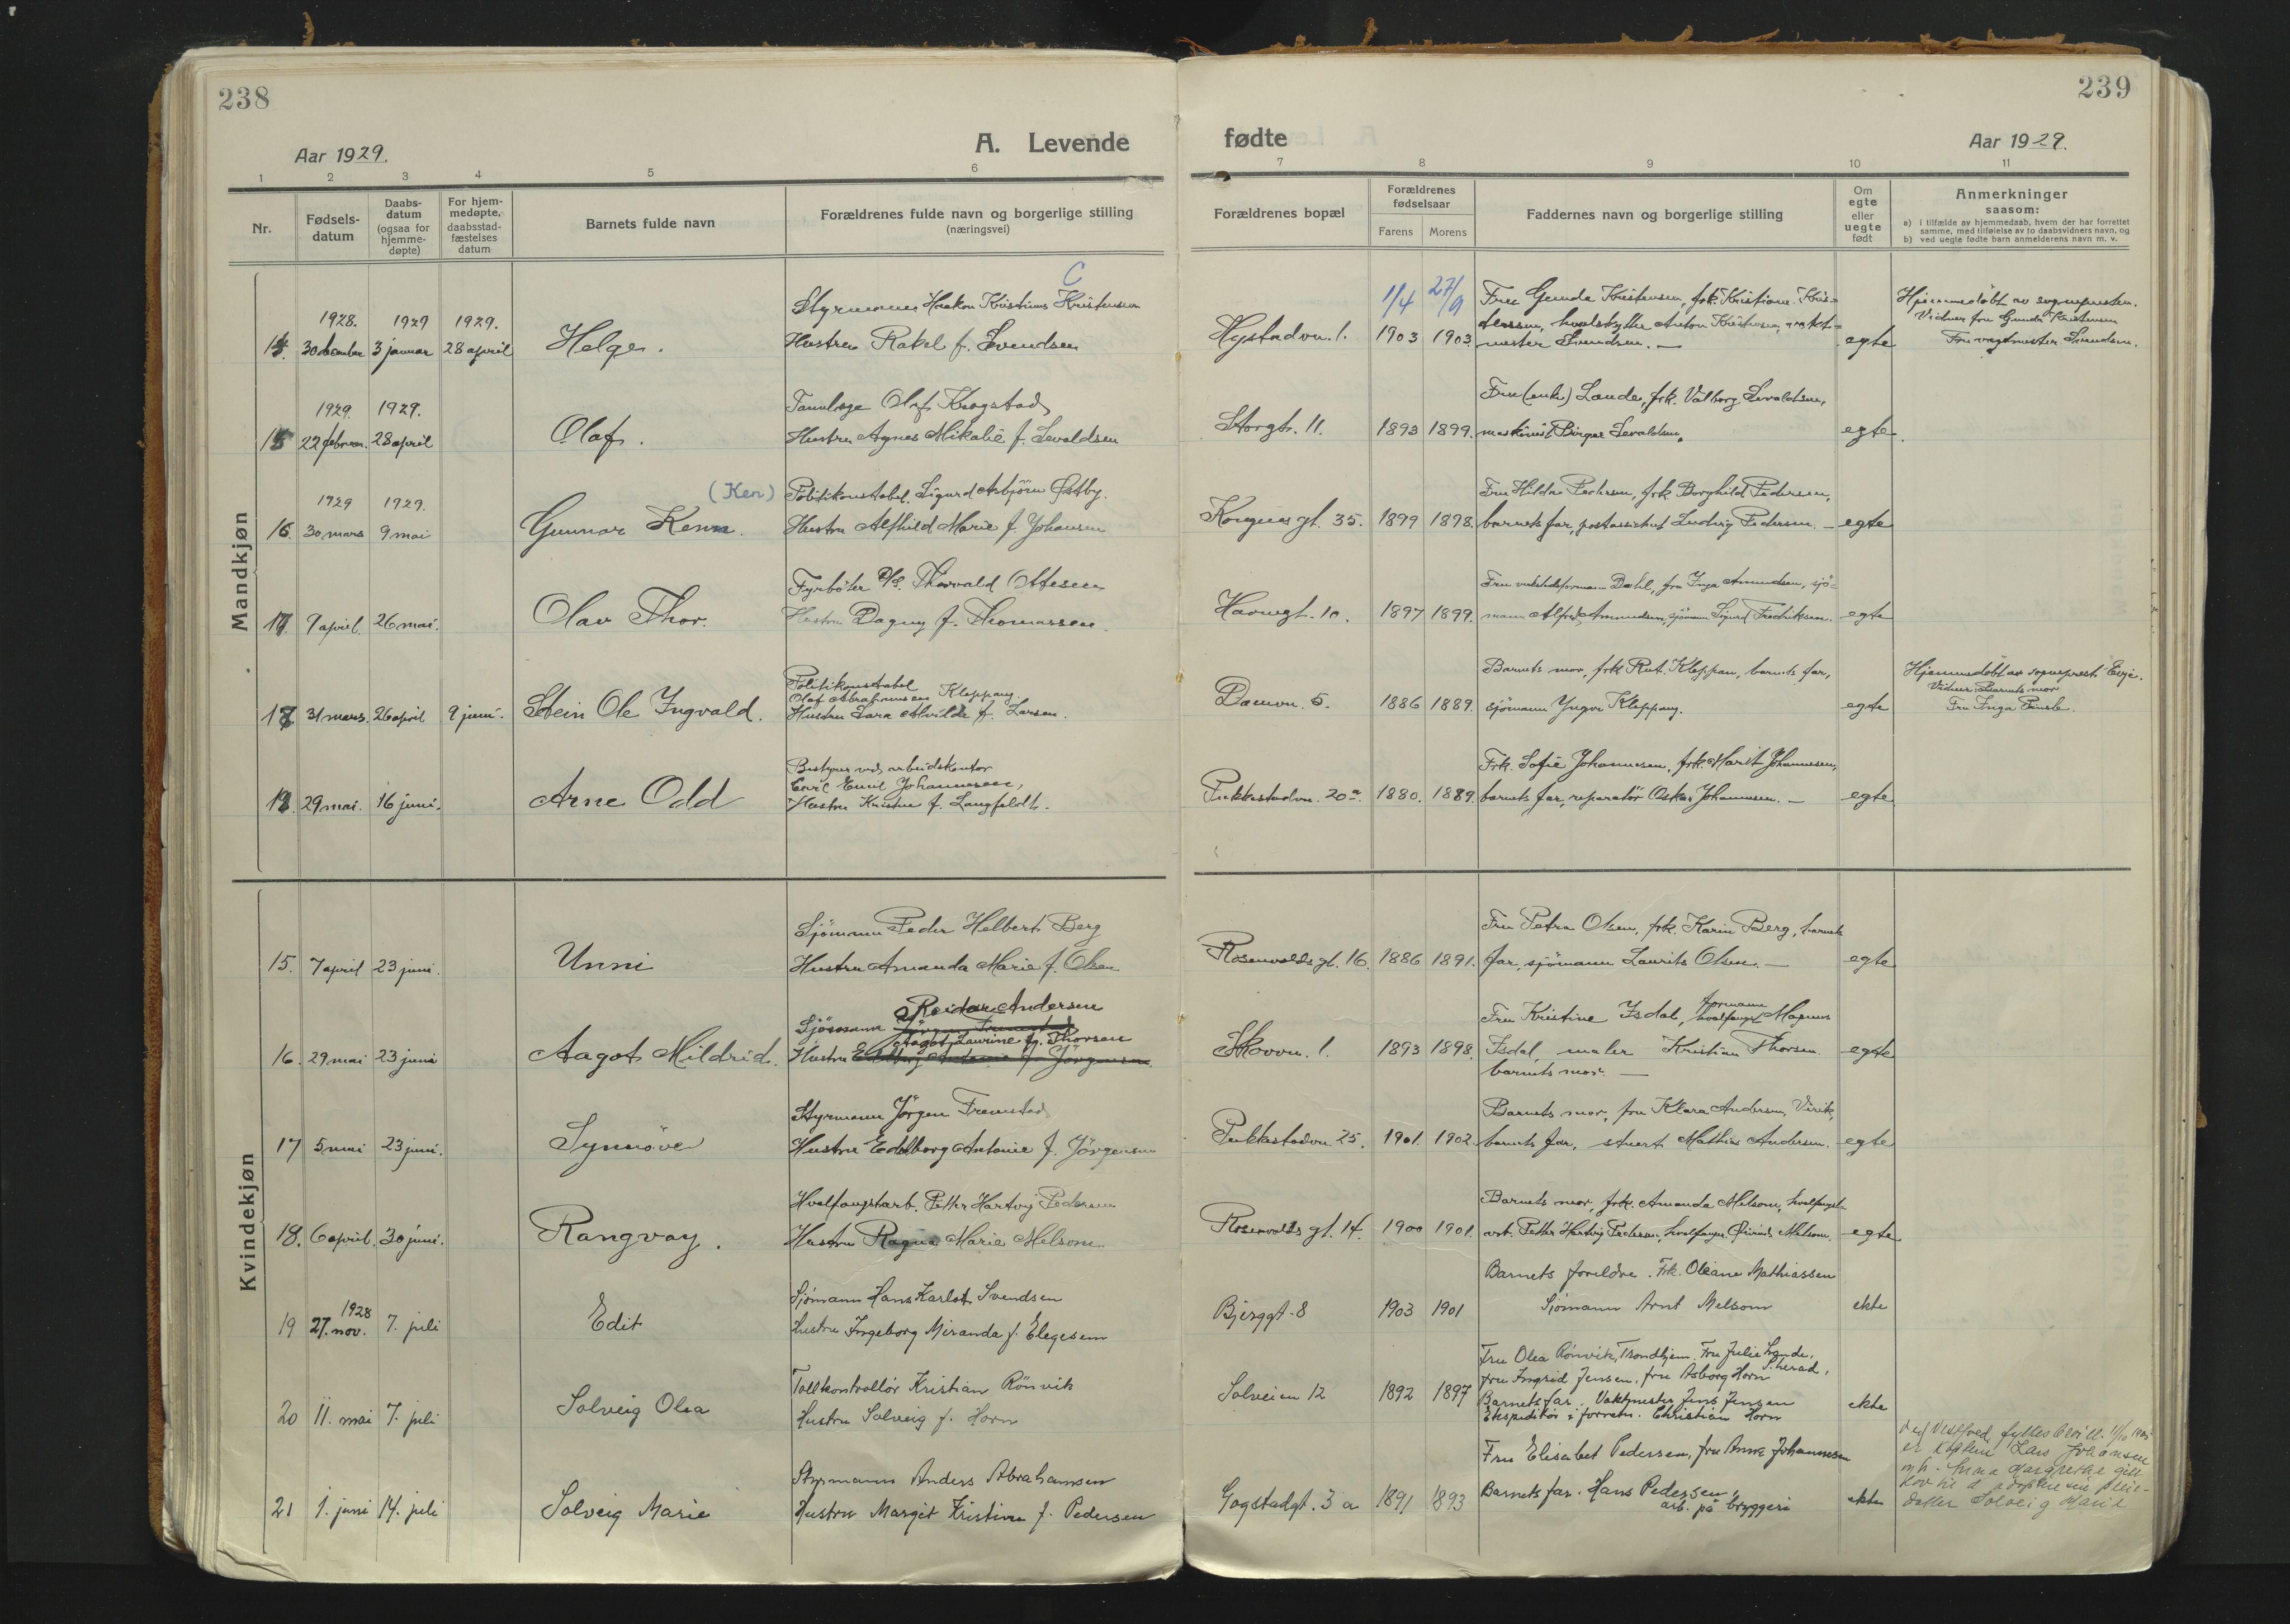 238
Aar 1929.
A. Levende
1 2 3 4 5 6
Nr.
Fødsels-
datum
Daabs-
datum
(ogsaa for
hjemme-
døpte)
For hjem-
medøpte,
daabsstad-
fæstelses
datum
Barnets fulde navn
Forældrenes fulde navn og borgerlige stilling
(næringsvei)
Mandkjøn
C
1928. 1929 1929. Styrmann Haakon Kristinus Kristensen
14. 30 december 3 januar 28 april Helge. Hustru Rakel f. Svendsen
1929. 1929. Tannlæge Olaf Krogstad
15 22 februar. 28 april Olaf. Hustru Agnes Mikalie f. Sevaldsen
1929 1929. (Ken) Politikonstabel Sigurd Asbjörn Østby.
16. 30 mars 9 mai Gunnar Kenn. Hustru Alfhild Marie f. Johansen
Fyrböter Thorvald Ottesen
17. 9 april. 26 mai. Olav Thor. Hustru Dagny f. Thomassen.
Politikonstabel
Olaf Abrahamsen Kleppang.
18 31 mars. 26 april 9 juni. Stein Ole Ingvald. Hustru Sara Alvilde f. Larsen.
Bestyrer ved arbeidskontor
Carl Emil Johannesen,
19. 29 mai. 16 juni. Arne Odd Hustru Kristine f. Langfeldt.
Kvindekjøn
Sjömann Peder Helbert Berg
15. 7 april 23 juni. Unni Hustru Amanda Marie f. Olsen
Reidar Andersen
Sjömann Jörgen Fremstad
Aagot Laurine f. Thorsen
16. 29 mai 23 juni Aagot Mildrid. Hustru Edelborg Antonie f. Jörgensen
Styrmann Jörgen Fremstad
17 5 mai 23 juni. Synnöve Hustru Edelborg Antonie f. Jörgensen
Hvalfangstarb. Petter Hartvig Pedersen
18. 6 april. 30 juni. Rangvay. Hustru Ragna Marie Melsom
1928 Sjömann Hans Karlot Svendsen
19 27. nov. 7. juli Edit Hustru Ingeborg Miranda f. Elegesem
Tollkontrollör Kristian Rönvik
20 11. mai 7. juli Solveig Olea Hustru Solveig f. Horn
Styrmann Anders Abrahamsen
21 1. juni 14. juli Solveig Marie Hustru Margit Kristine f. Pedersen
239
fødte
Aar 1929.
7 8 9 10 11
Forældrenes bopæl
Forældrenes
fødselsaar
Farens Morens
Faddernes navn og borgerlige stilling
Om
egte
eller
uegte
født
Anmerkninger
saasom:
a) i tilfælde av hjemmedaab, hvem der har forrettet
samme, med tilføielse av to daabsvidners navn, og
b) ved uegte fødte barn anmelderens navn m. v.
1/4 27/9 Fru Gunda Kristensen, frk. Kristiane Kris- Hjemmedöbt av sognepresten.
tensen, hvalskytter Anton Kristensen, Vidner fru Gunda Kristensen
Hystadvn. 1. 1903 1903. mester Svendsen. — egte Fru vagtmester Svendsen.
Fru (enke) Lande, frk. Valborg Sevaldsen,
Storgt. 11. 1893 1899. maskinist Birger Sevaldsen. egte.
Fru Hilda Pedersen, frk. Borghild Pedersen,
Kongens gt. 35. 1899 1898. barnets far, postassistent Ludvig Pedersen. — egte
Fru Dahl, fru Inga Amundsen, sjö-
Havnegt. 10. 1897 1899. mann Alfred Amundsen, sjömann Sigurd Fredriksen. egte
Barnets mor, frk. Rut Kleppan, barnets far, Hjemmedöbt av sogneprest Evje.
Vidner: Barnets mor
Damvn. 5. 1886 1889. sjömann Yngve Kleppang. egte Fru Inga
Frk. Sofie Johannesen, frk. Marit Johannesen,
Pukkestadvn. 20a. 1880. 1889. barnets far, reparatör Oskar Johannesen. — egte
Fru Petra Olsen, frk. Karin Berg, barnets
Rosenvolds gt. 16. 1886 1891. far, sjömann Laurits Olsen. — egte
Fru Kristine Isdal, formann hvalfangst Magnus
Skovvn. 1. 1893 1898. Isdal, maler Kristian Thorsen. egte
barnets mor. —
Barnets mor, fru Klara Andersen, Virik,
Pukkestadvn 25. 1901. 1902. barnets far, stuert Mathias Andersen. egte
Barnets mor, frk. Amanda Melsom, hvalfangst-
Rosenvolds gt. 14. 1900 1901. arb. Petter Hartvig Pedersen, hvalfanger Öivind Melsom. egte
Barnets foreldre. Frk. Oleane Mathiassen
Bjerggt. 8 1903 1901 Sjömann Arnt Melsom ekte
Fru Olea Rönvik, Trondhjem. Fru Julie
fru Ingrid Jensen, fru Asborg Horn
Solveien 12 1892 1897 Barnets far. Vaktmester Jens Jensen ekte
Ekspeditör i forretn. Christian Horn
Fru Elisabet Pedersen, fru Anna Johannesen
Gogstadgt. 3 a 1891 1893 Barnets far. Hans Pedersen, ekte
arb. på bryggeri
Ved Vestfold fylkes 11/10 1945
er kaptein Lars Johansen
og h. Anna Margrethe gitt
lov til å adoptere sin pleie-
datter Solveig Marie